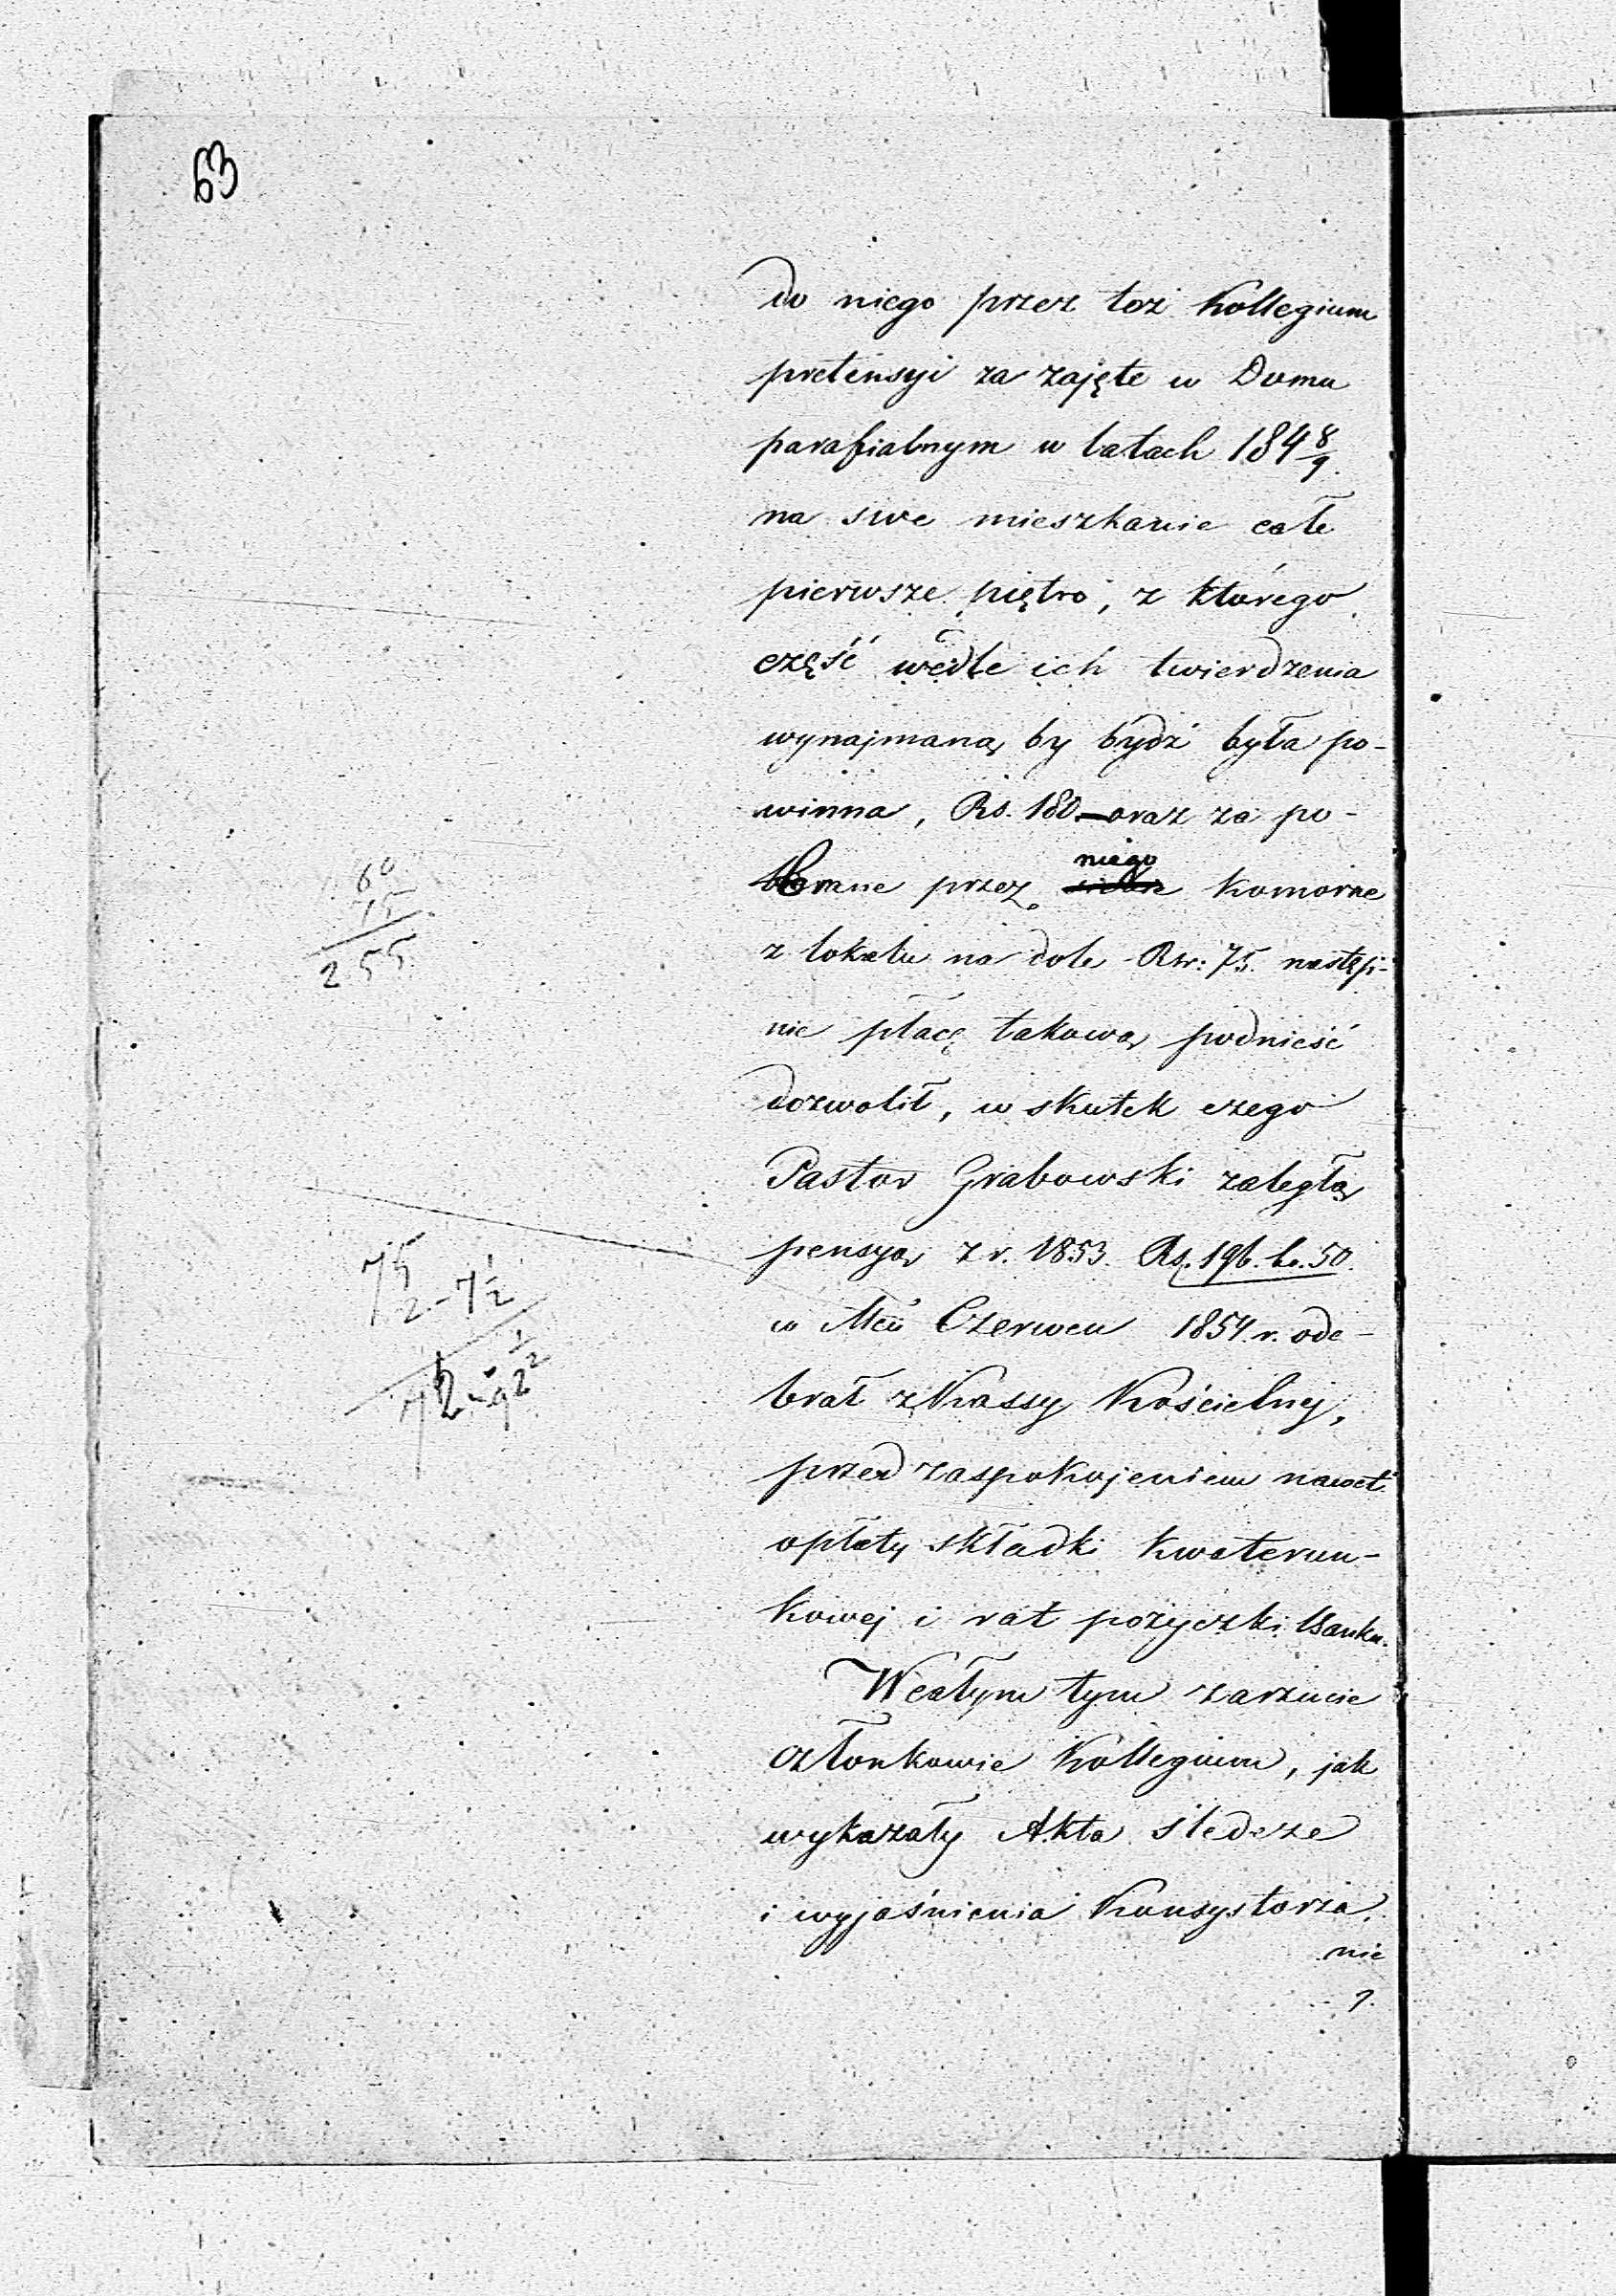 63
do niego przez toż Kollegium
pretensyi za zajęte w Domu
parafialnym w latach 184 8/9.
na swe mieszkanie całe
pierwsze piętro, z którego
część wedle ich twierdzenia
wynajmaną by bydź była po-
winna, Rs. 180 — oraz za po-
brane przez niego komorne
z lokalu na dole Rsr: 75. następ-
nie płacę takową podnieść
dozwolił, w skutek czego
Pastor Grabowski zaległą
pensyą z r. 1853. Rs. 196. k. 50.
w Mcu Czerwcu 1854 r. ode-
brał z Kassy Kościelnej,
przed zaspokojeniem nawet
opłaty składki kwaterun-
kowej i rat pożyczki Banku.
W całym tym zarzucie
członkowie Kollegium, jak
wykazały Akta śledcze
i wyjaśnienia Konsystorza,
nie
60
75
255
75
2 - 7 1/2